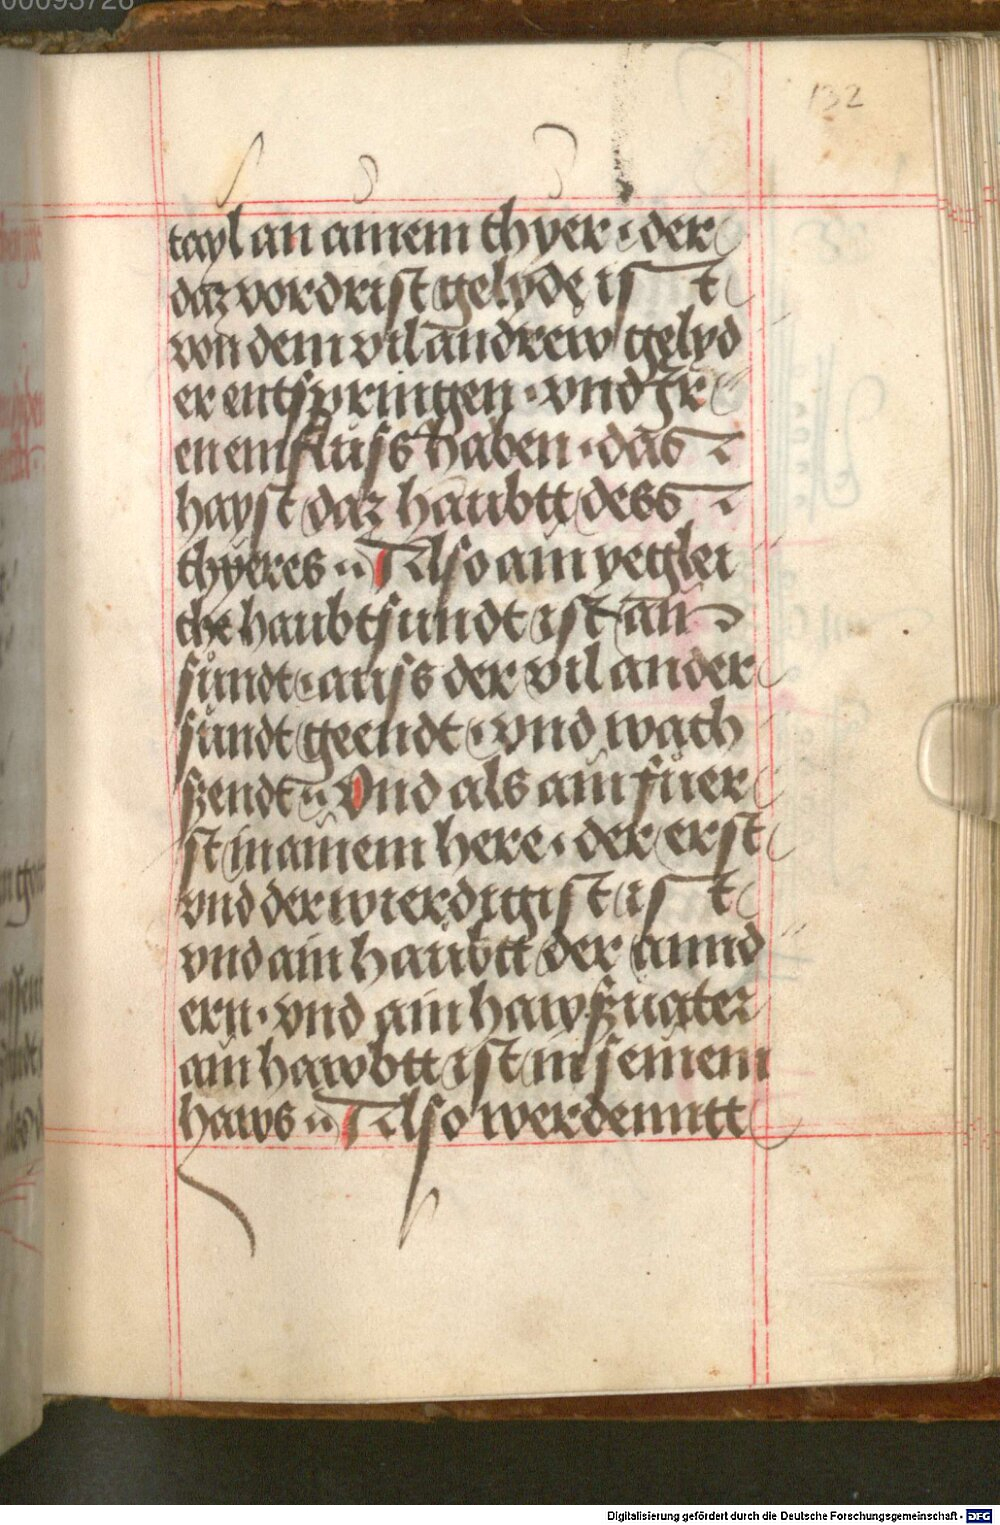 00093728
132
tayl an ainem thyer · der
daz vordrist gelyde ist
von dem vil andrew gelyd
er entspringen · vnd Jr
en einfluss haben · das
hayst daz haubtt dess
thyeres ·· Also ain yeglei
che haubtsundt ist ain
sundt · auss der vil ander
sundt geendt · vnd wach
ssendt ·· Vnd als ain fuer
st in ainem here · der erst
vnd der wierdigist ist
vnd ain haubtt der annd
ern · vnd ain hawszuater
ain hawbtt ist in seinem
haws ·· Also werden mitt
Digitalisierung gefördert durch die Deutsche Forschungsgemeinschaft - DFG